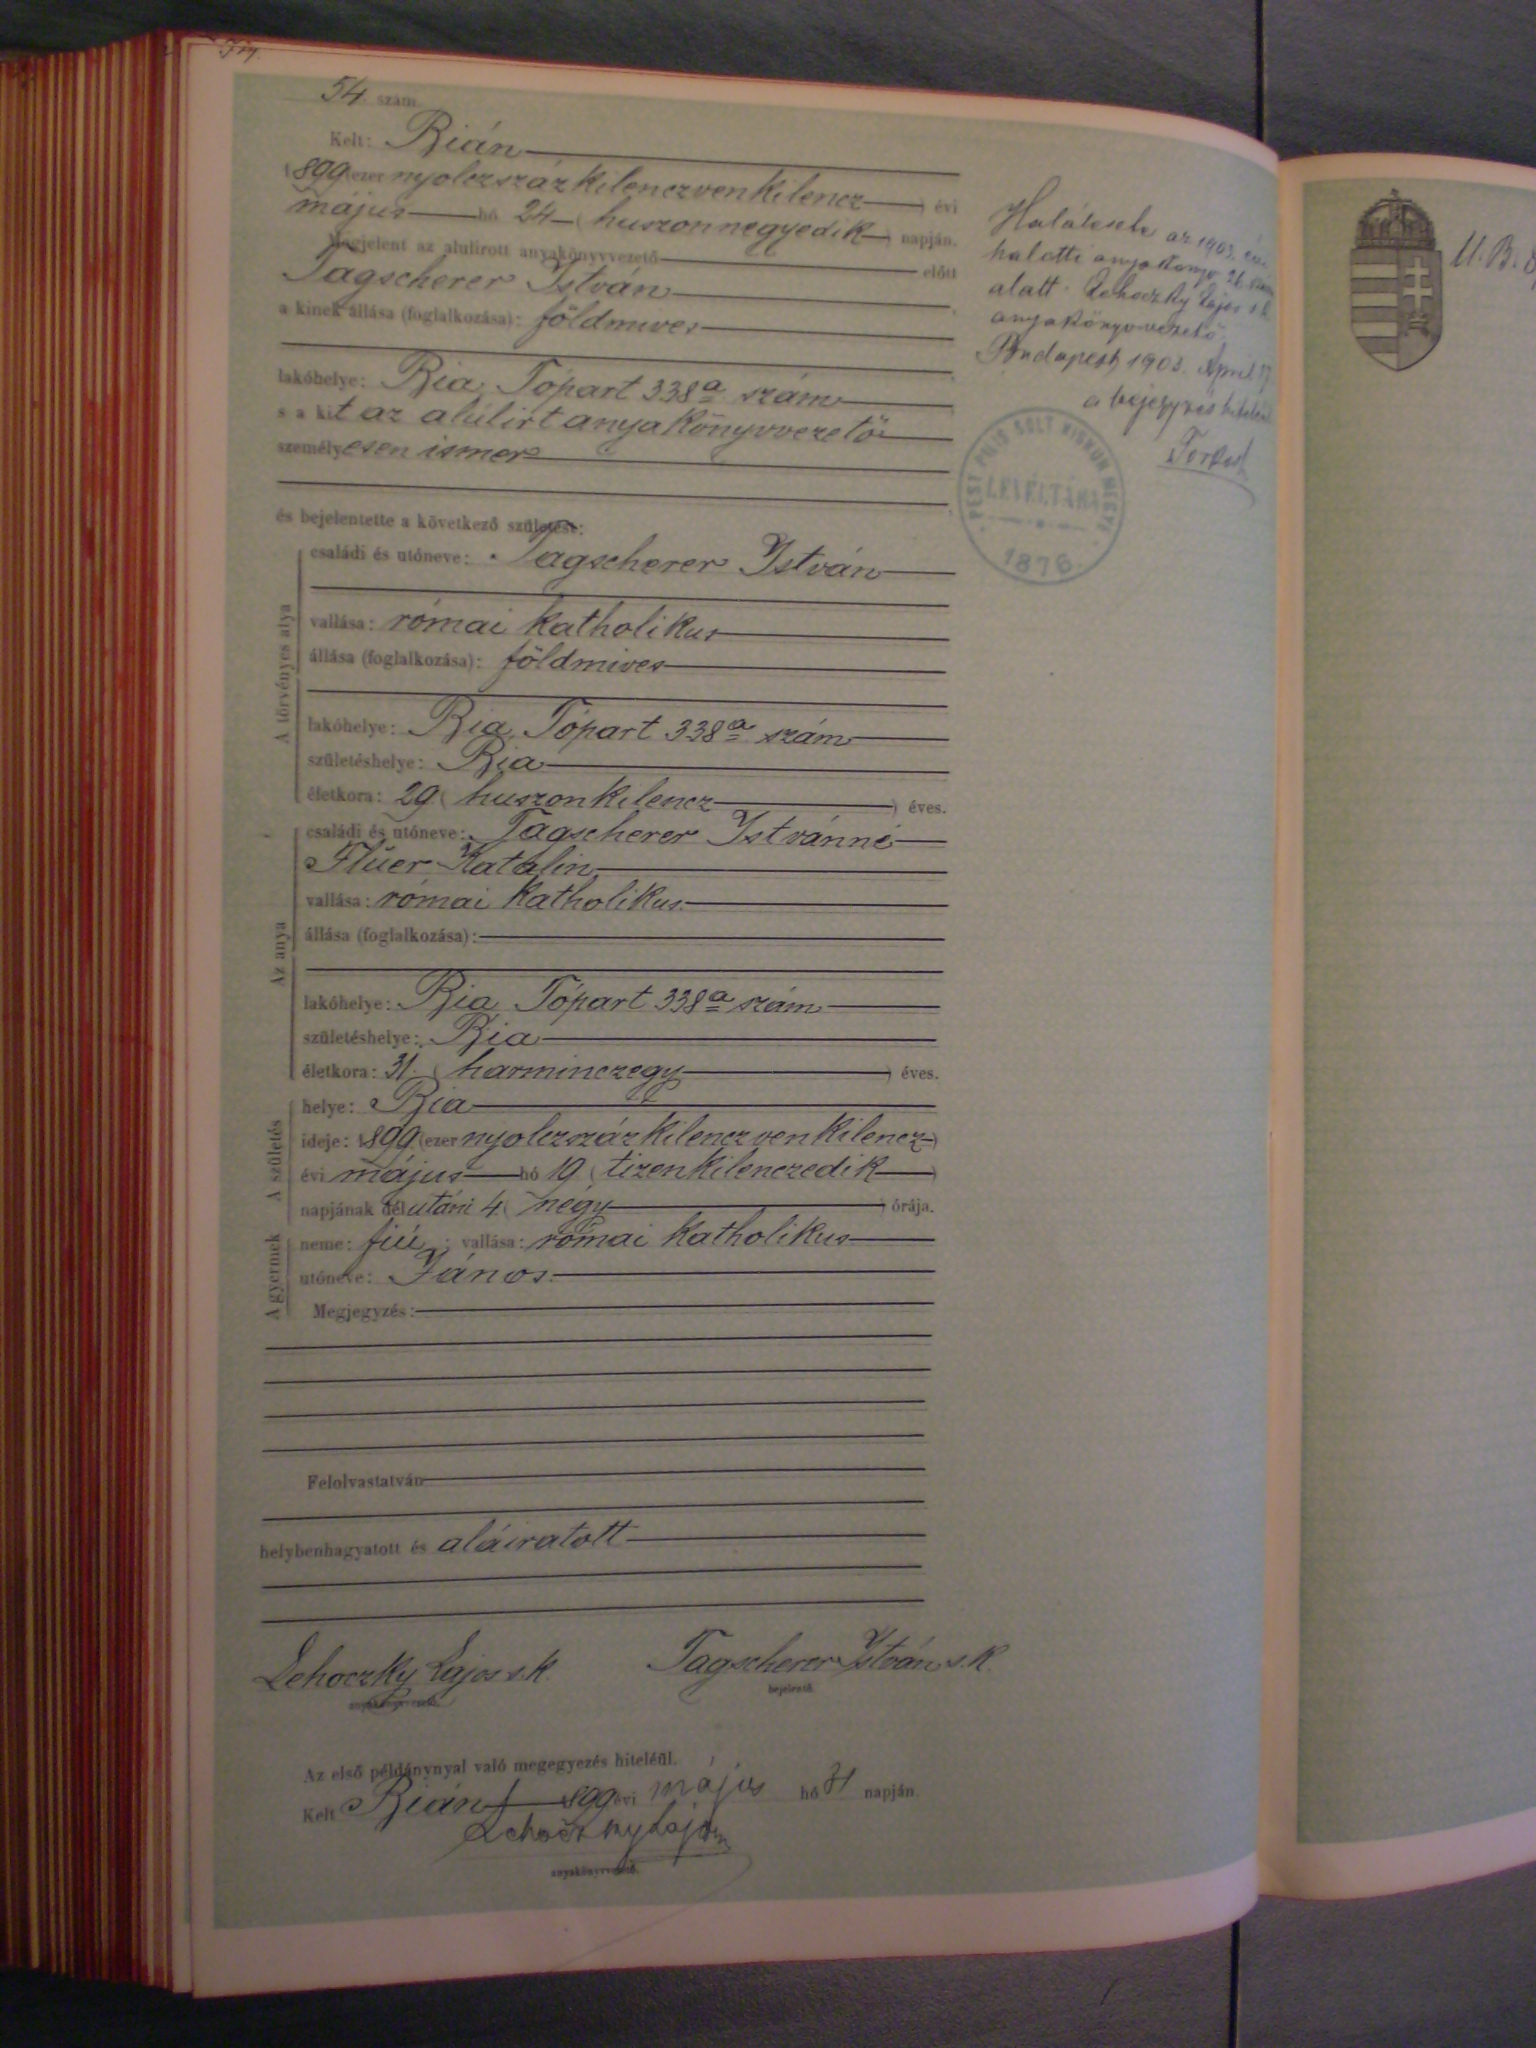 54. szám.
Kelt: Bián
1899 (ezer nyolczszázkilenczvenkilencz) évi
május hó 24 (huszonnegyedik) napján.
Megjelent az alulirott anyakönyvvezető előtt
Tagscherer István
a kinek állása (foglalkozása): földmives
lakóhelye: Bia, Tópart 338 a szám
s a kit az alúlirt anyakönyvvezető
személyesen ismer
és bejelentette a következő születést:
A törvényes atya
családi és utóneve: Tagscherer István
vallása: római katholikus
állása (foglalkozása): földmives
lakóhelye: Bia, Tópart 338 a szám
születéshelye: Bia
életkora: 29 (huszonkilencz) éves.
Az anya
családi és utóneve: Tagscherer Istvánné
Flüer Katalin
vallása: római katholikus
állása (foglalkozása):
lakóhelye: Bia, Tópart 338 a szám
születéshelye: Bia
életkora: 31. (harminczegy) éves.
A születés
helye: Bia
ideje: 1899. (ezer nyolczszázkilenczvenkilencz)
évi május hó 19 (tizenkilenczedik)
napjának délutáni 4 (négy) órája.
A gyermek
neme: fiú; vallása: római katholikus
utóneve: János.
Megjegyzés:
Felolvastatván
helybenhagyatott és aláiratott
Lehoczky Lajos s.k.
anyakönyvvezető.
Tagscherer István s.k.
bejelentő.
Az első példánynyal való megegyezés hiteléül.
Kelt Bián 1899 évi május hó 31 napján.
Lehoczky Lajos
anyakönyvvezető.
Halálesete az 1903. évi
halotti anyakönyv 26
alatt. Lehoczky Lajos s.k.
anyakönyvvezető.
Budapest, 1903. April 17
a bejegyzés hiteléül
PEST PILIS SOLT KISKUN MEGYE
LEVÉLTÁRA
1876.